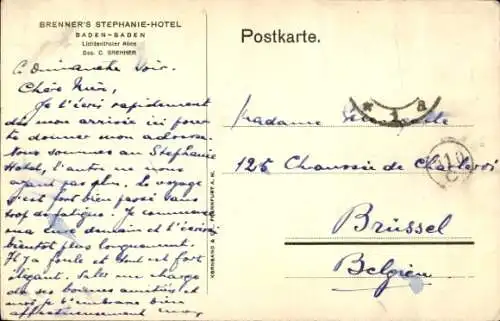 BRENNER'S STEPHANIE-HOTEL
BADEN-BADEN
Lichtenthaler Allee
Bes. C. BRENNER
Postkarte.
Ce Dimanche soir.
Chère
Je t'écris rapidement
dès mon arrivée ici pour
te donner mon adresse.
Nous sommes au Stephanie
Hotel, l'autre ne nous
ayant pas plu. Le voyage
s'est fort bien passé sans
trop de fatigue. Je commence
ma cure demain et t'écrirai
bientôt plus longuement.
Il y a foule et tout est fort
élégant. me charge
de ses bonnes amitiés et
moi je t'embrasse bien
affectueusement
Madame
125 Chaussée de Charleroi
Brüssel
Belgien